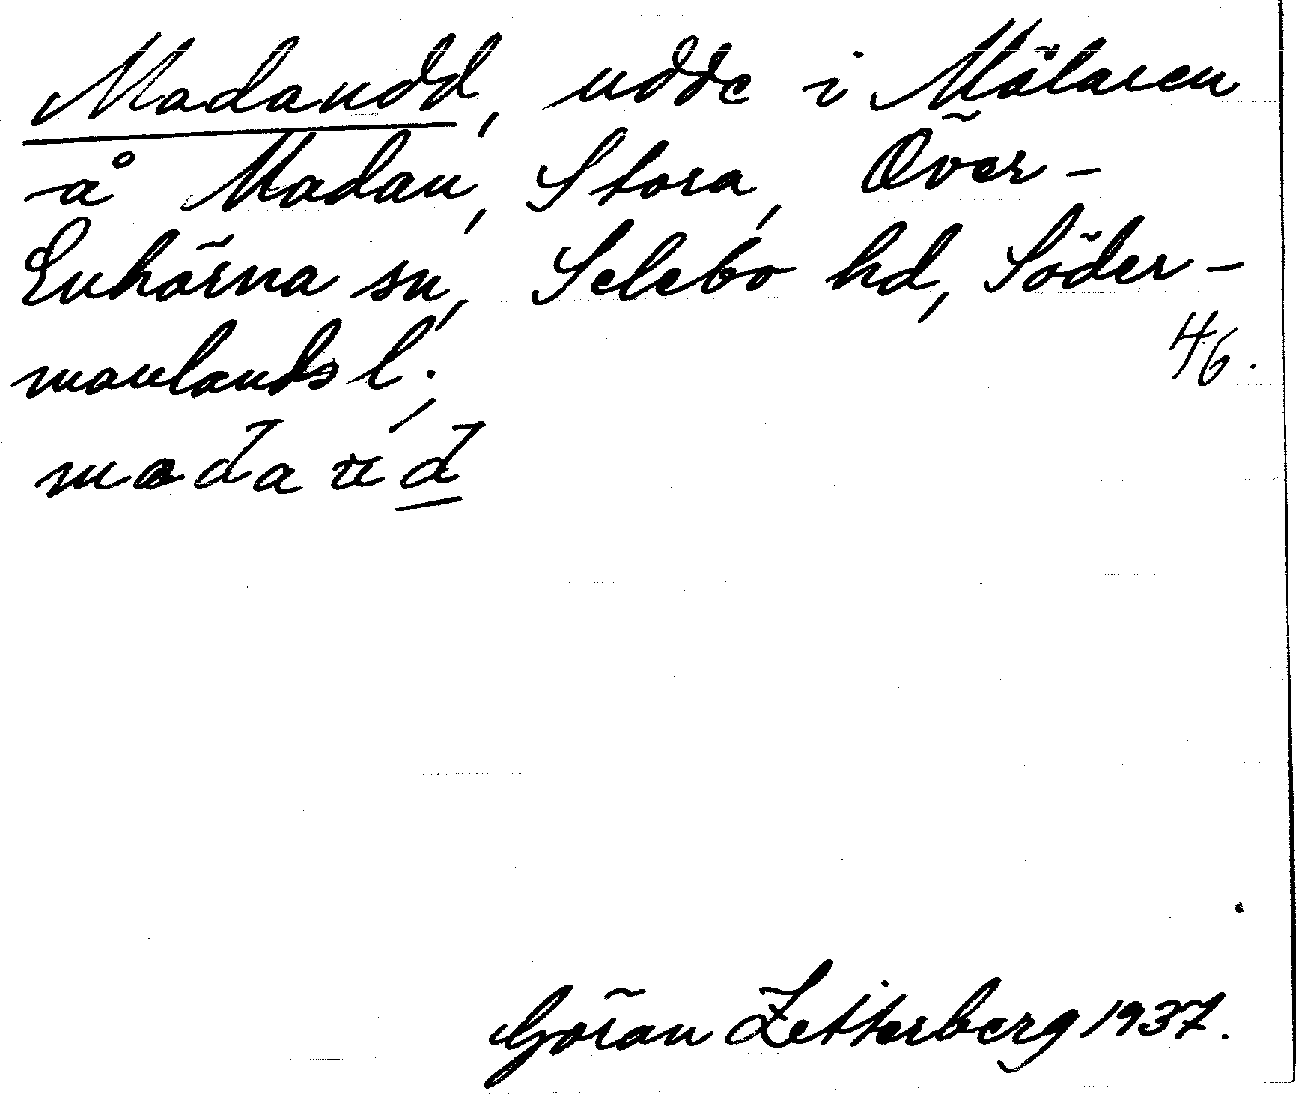 Madaudd, udde i Mälaren
å Madan, Stora, Över-
Enhörna sn, Selebo hd, Söder-
manlands l.;
46.
Göran Zetterberg 1937.